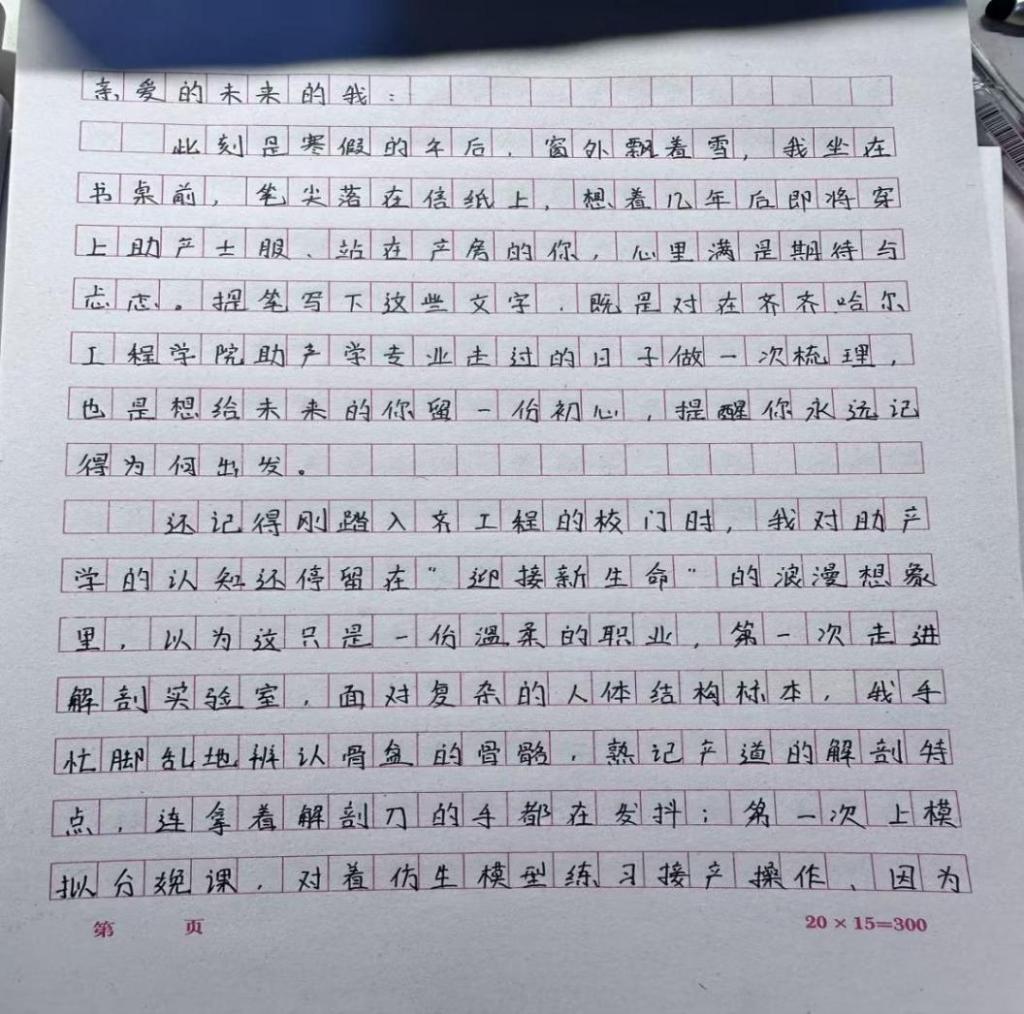 亲爱的未来的我：
此刻是寒假的午后，窗外飘着雪，我坐在
书桌前，笔尖落在信纸上，想着几年后即将穿
上助产士服、站在产房的你，心里满是期待与
忐忑。提笔写下这些文字，既是对在齐齐哈尔
工程学院助产学专业走过的日子做一次梳理，
也是想给未来的你留一份初心，提醒你永远记
得为何出发。
还记得刚踏入齐工程的校门时，我对助产
学的认知还停留在“迎接新生命”的浪漫想象
里，以为这只是一份温柔的职业，第一次走进
解剖实验室，面对复杂的人体结构标本，我手
忙脚乱地辨认骨盆的骨骼，熟记产道的解剖特
点，连拿着解剖刀的手都在发抖；第一次上模
拟分娩课，对着仿生模型练习接产操作，因为
第 页
20×15=300